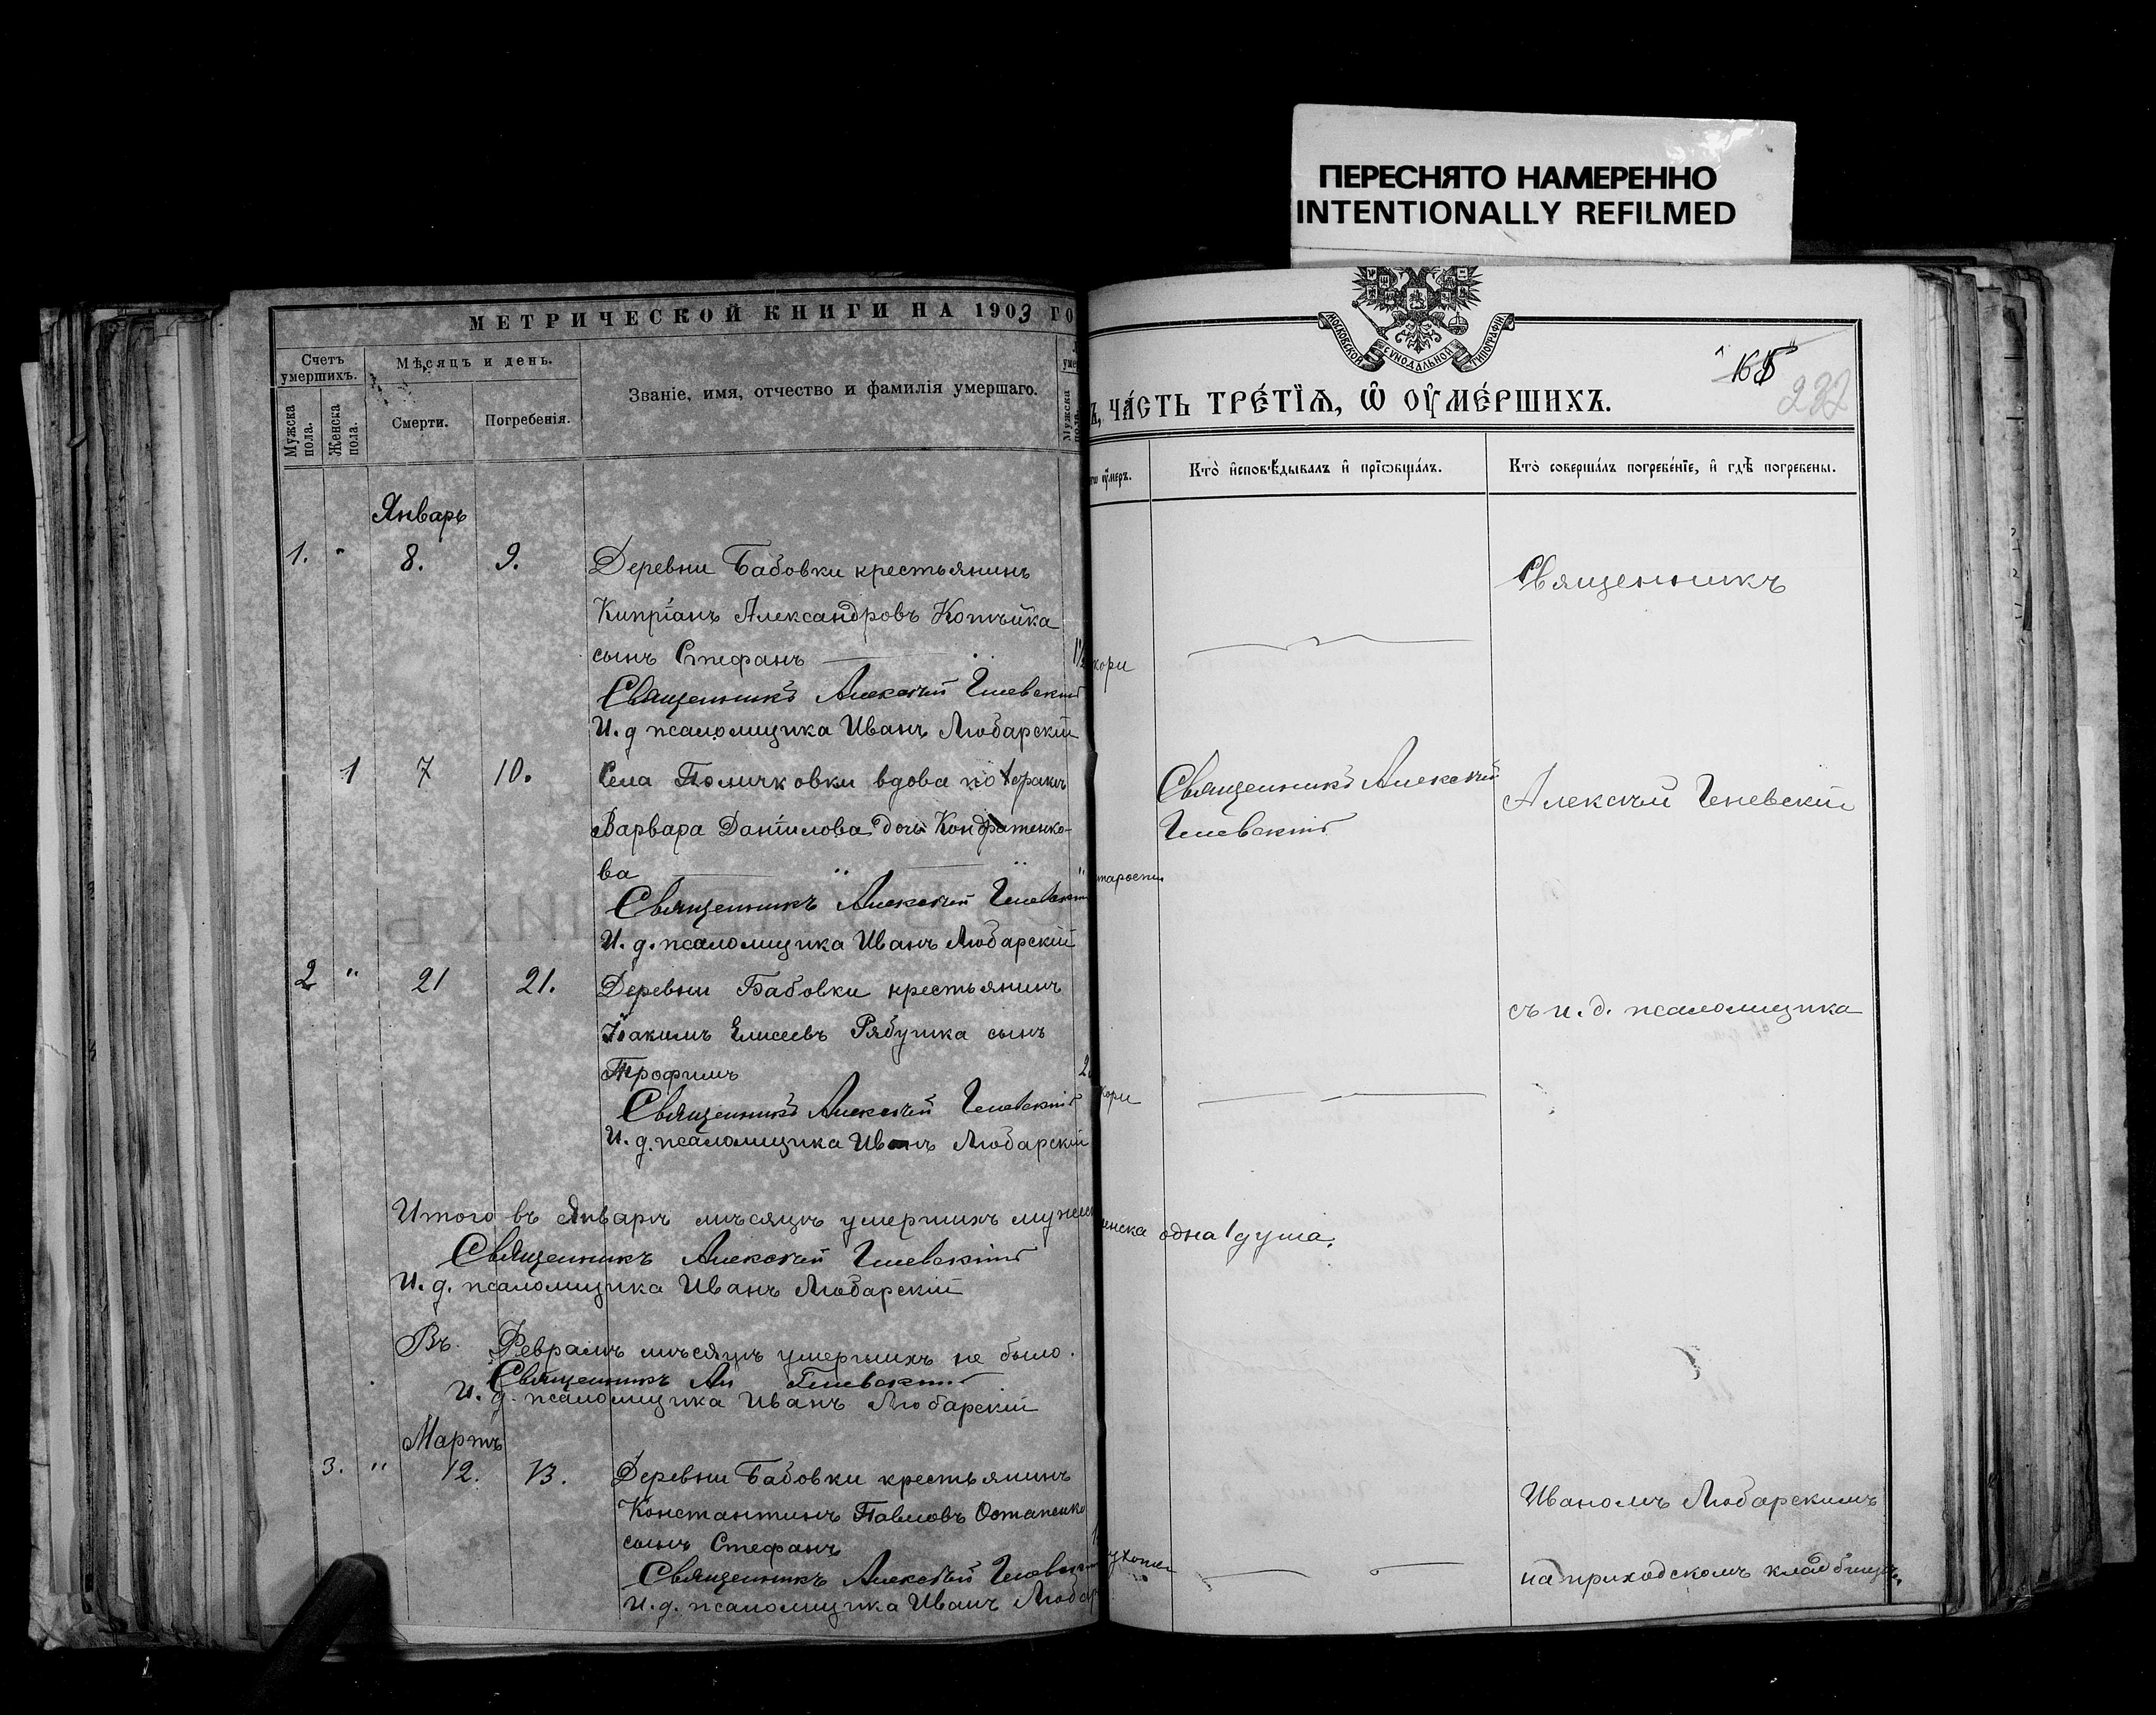 ПЕРЕСНЯТО НАМЕРЕННО
INTENTIONALLY REFILMED
МЕТРИЧЕСКОЙ КНИГИ НА 1903 ГО
Счетъ умершихъ.
Мужска пола.
Женска пола.
Мѣсяцъ и день.
Смерти.
Погребенія.
Званіе, имя, отчество и фамилія умершаго.
Мужска пола.
Январь
1. " 8. 9. Деревни Бабовки крестьянинъ
Кипріанъ Александровъ Копѣйка
сынъ Стефанъ
Священникъ Алексѣй
И. д псаломщика Иванъ Любарскій
1 7 10. Села вдова
Варвара Даніилова дочь Кондратенко-
ва
Священникъ Алексѣй
И. д. псаломщика Иванъ Любарскій
2 " 21 21. Деревни Бабовки крестьянинъ
Іоакимъ Елисеевъ Рябушка сынъ
Трофимъ
Священникъ Алексѣй
И. д. псаломщика Иванъ Любарскій
Итого въ Январѣ мѣсяцѣ умершихъ
Священникъ Алексѣй
И. д. псаломщика Иванъ Любарскій
Въ Февралѣ мѣсяцѣ умершихъ не было.
Священникъ Ал
И. д. псаломщика Иванъ Любарскій
Мартъ
3. " 12. 13. Деревни Бабовки крестьянинъ
Константинъ Павловъ Остапенко
сынъ Стефанъ
Священникъ Алексѣй
И. д. псаломщика Иванъ Любар
МОСКОВСКОЙ СѴНОДАЛЬНОЙ ТИПОГРАФІИ
232
Ъ, ЧА́СТЬ ТРЕ́ТІѦ, Ѡ҆ ОУ҆МЕ́РШИХЪ.
ᲂу҆́меръ.
Кто̀ и҆сповѣ́дывалъ и҆ прїѡбща́лъ.
Кто̀ соверша́лъ погребе́нїе, и҆ гдѣ̀ погребены.
кори
Священникъ
Священникъ Алексѣй
Алексѣй
тарости
съ и. д. псаломщика
кори
енска одна 1 душа.
Иваномъ Любарскимъ
на приходскомъ кладбищѣ.